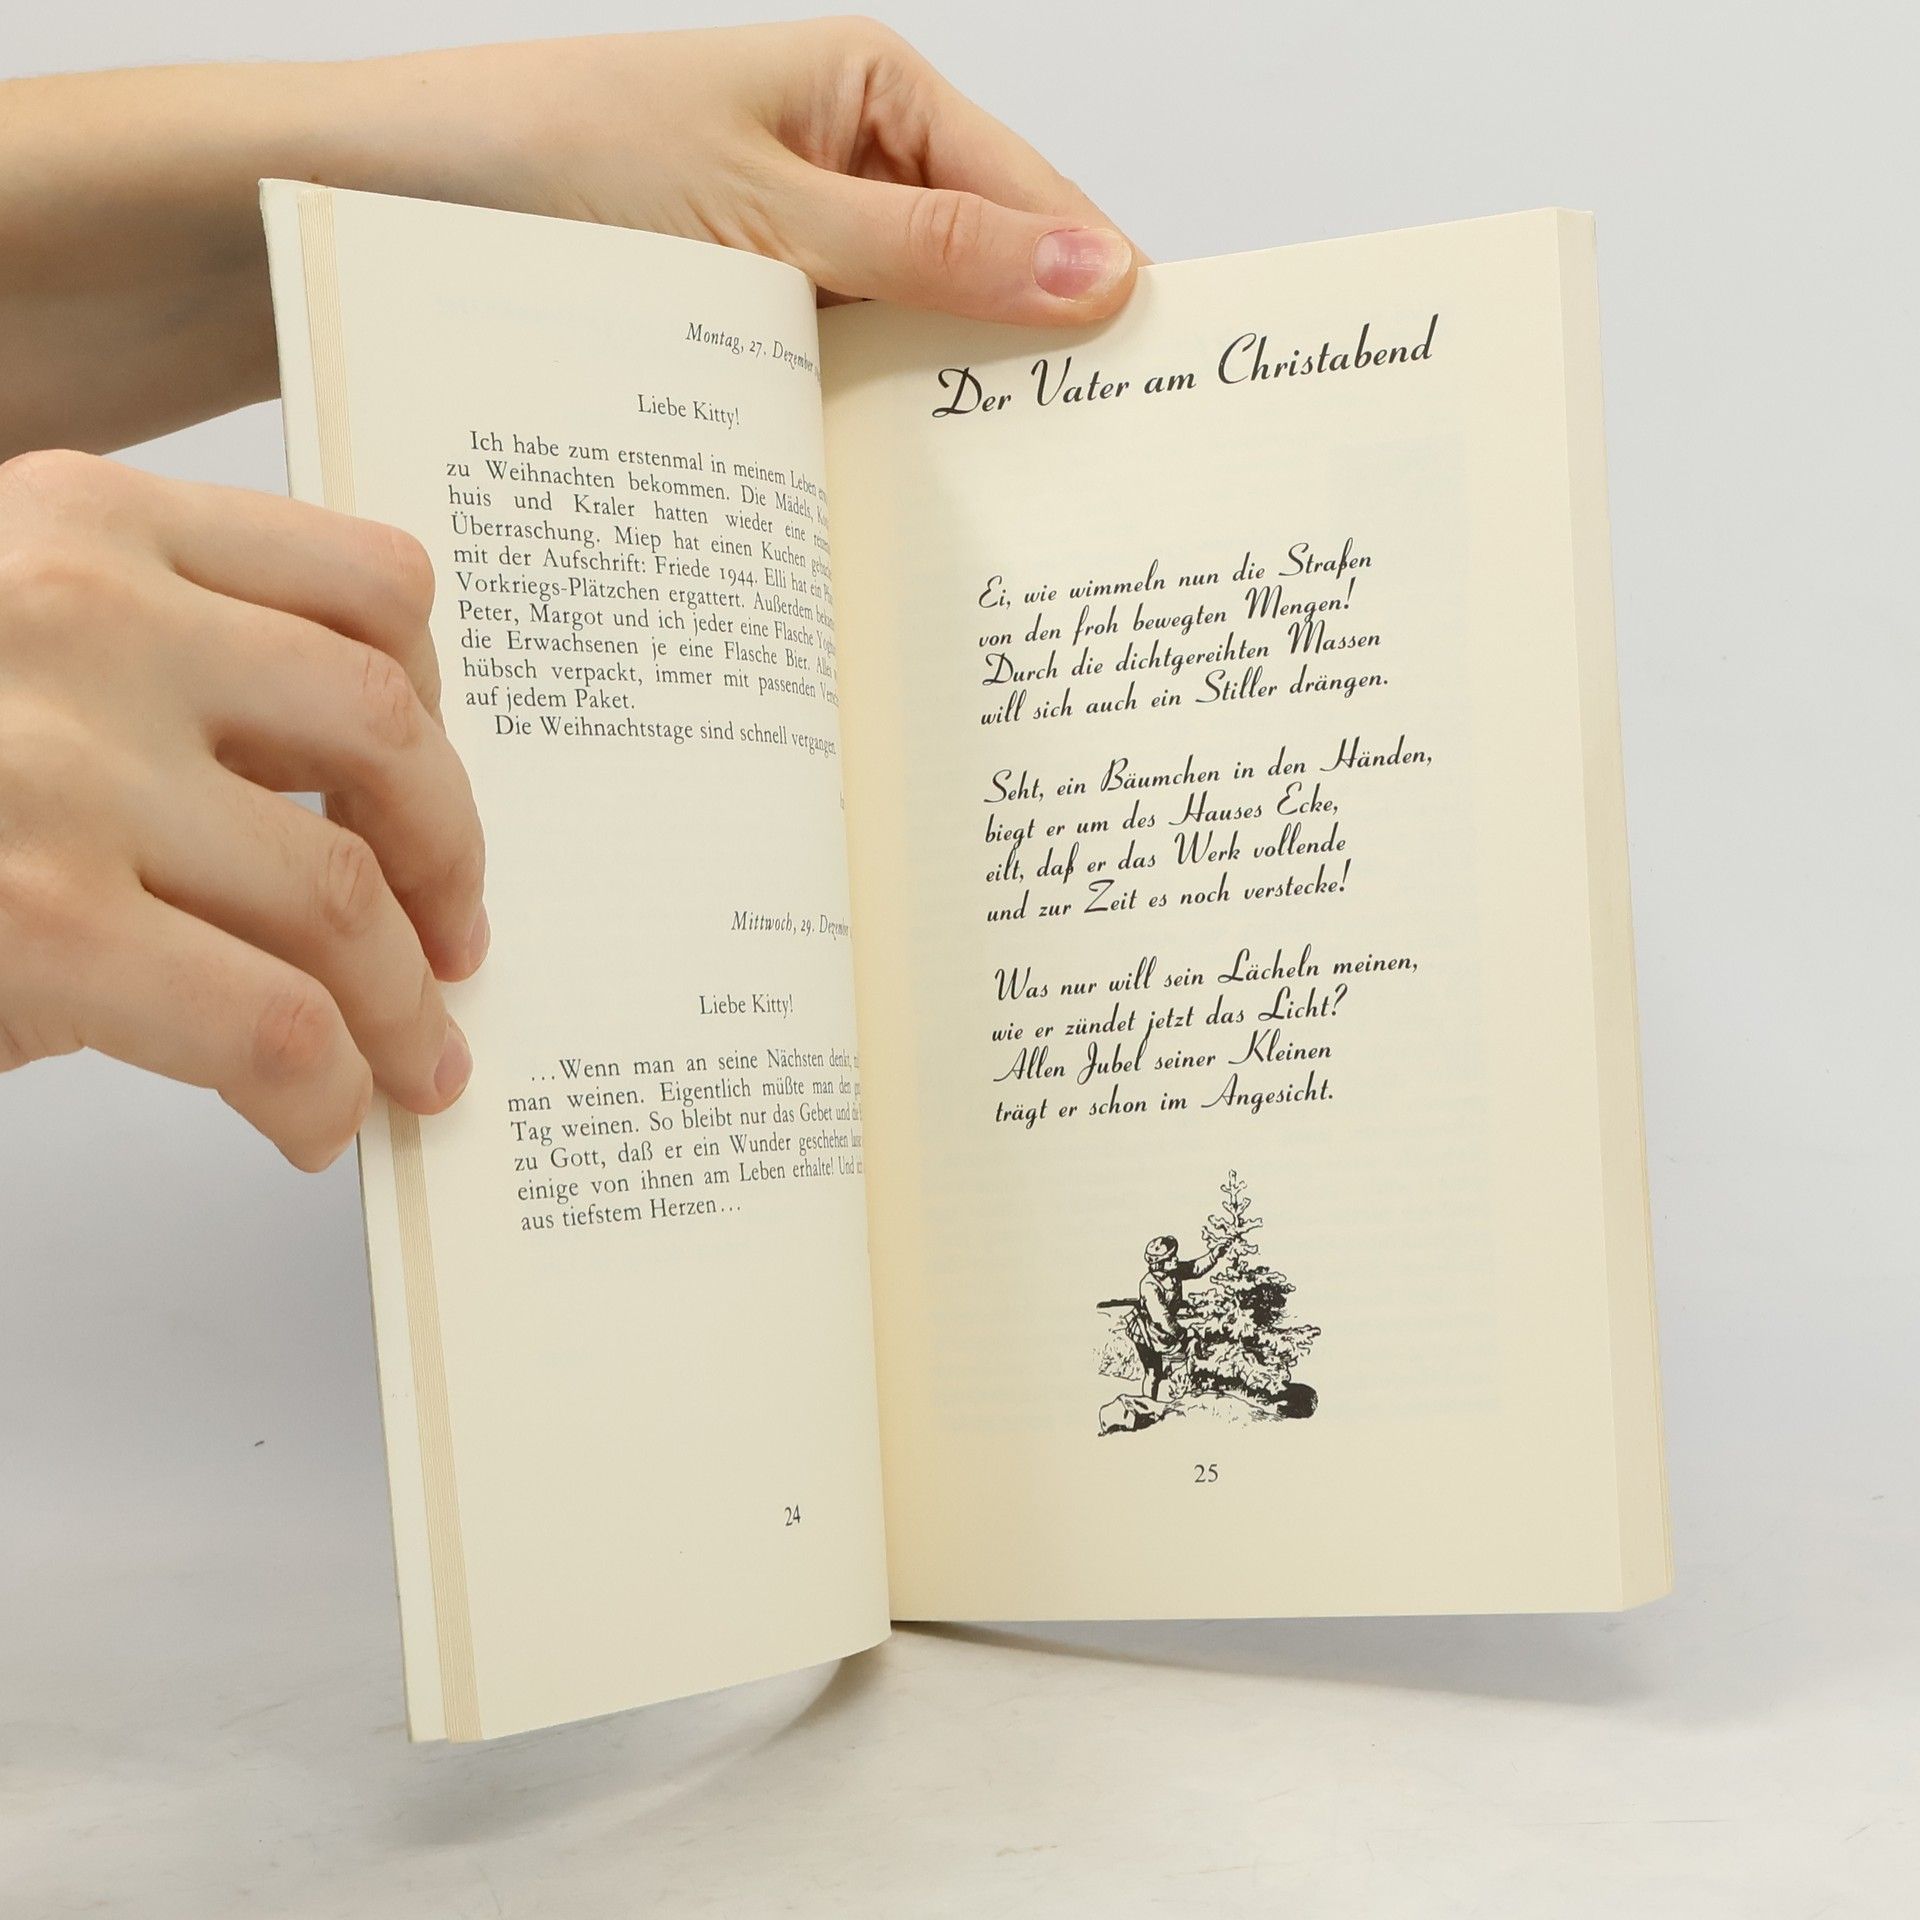 Montag, 27. Dezember
Liebe Kitty!
Ich habe zum erstenmal in meinem Leben
zu Weihnachten bekommen. Die Mädels,
huis und Kraler hatten wieder eine
Überraschung. Miep hat einen Kuchen
mit der Aufschrift: Friede 1944. Elli hat ein
Vorkriegs-Plätzchen ergattert. Außerdem
Peter, Margot und ich jeder eine Flasche
die Erwachsenen je eine Flasche Bier. Alles
hübsch verpackt, immer mit passenden
auf jedem Paket.
Die Weihnachtstage sind schnell vergangen.
Mittwoch, 29. Dezember
Liebe Kitty!
...Wenn man an seine Nächsten denkt,
man weinen. Eigentlich müßte man den
Tag weinen. So bleibt nur das Gebet und
zu Gott, daß er ein Wunder geschehen
einige von ihnen am Leben erhalte! Und
aus tiefstem Herzen...
24
Der Vater am Christabend
Ei, wie wimmeln nun die Straßen
von den froh bewegten Mengen!
Durch die dichtgereihten Massen
will sich auch ein Stiller drängen.
Seht, ein Bäumchen in den Händen,
biegt er um des Hauses Ecke,
eilt, daß er das Werk vollende
und zur Zeit es noch verstecke!
Was nur will sein Lächeln meinen,
wie er zündet jetzt das Licht?
Allen Jubel seiner Kleinen
trägt er schon im Angesicht.
25